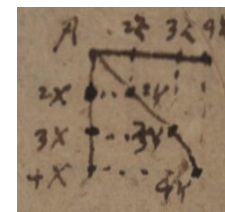 A 2x 3x 4x
2x 2x
3x 3x
4x 4x